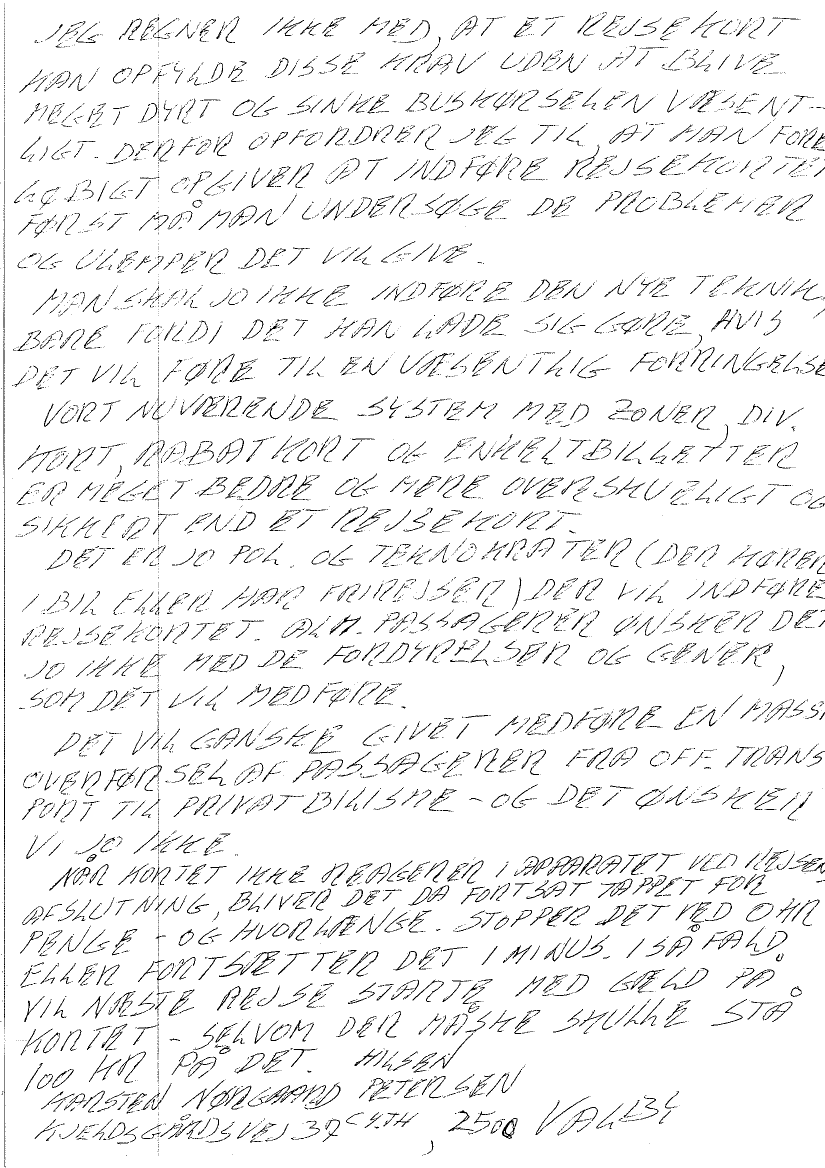 JEG REGNER IKKE MED, AT ET REJSEKORT
KAN OPFYLDE DISSE KRAV UDEN AT BLIVE
MEGET DYRT OG SINKE BUSKØRSELEN VÆSENT-
LIGT. DERFOR OPFORDRER JEG TIL, AT MAN FORE
LØBIGT OPGIVER AT INDFØRE REJSEKORTET
FØRST MÅ MAN UNDERSØGE DE PROBLEMER
OG ULEMPER DET VIL GIVE.
MAN SKAL JO IKKE INDFØRE DEN NYE TEKNIK,
BARE FORDI DET KAN LADE SIG GØRE, HVIS
DET VIL FØRE TIL EN VÆSENTLIG FORRINGELSE
VORT NUVÆRENDE SYSTEM MED ZONER, DIV.
KORT, RABATKORT OG ENKELTBILLETTER
ER MEGET BEDRE OG MERE OVERSKUELIGT OG
SIKKERT END ET REJSEKORT.
DET ER JO POL. OG TEKNOKRATER (DER KØRER
I BIL ELLER HAR FRIREJSER) DER VIL INDFØRE
REJSEKORTET. ALM. PASSAGERER ØNSKER DET
JO IKKE MED DE FORDYRELSER OG GENER,
SOM DET VIL MEDFØRE.
DET VIL GANSKE GIVET MEDFØRE EN MASSI
OVERFØRSEL AF PASSAGERER FRA OFF. TRANS
PORT TIL PRIVATBILISME - OG DET ØNSKER
VI JO IKKE.
NÅR KORTET IKKE REAGERER I APPARATET VED REJSEN
AFSLUTNING, BLIVER DET DA FORTSAT TAPPET FOR
PENGE - OG HVORLÆNGE. STOPPER DET VED 0 KR
ELLER FORTSÆTTER DET I MINUS. I SÅ FALD
VIL NÆSTE REJSE STARTE MED GÆLD PÅ
KORTET - SELVOM DER MÅSKE SKULLE STÅ
100 KR PÅ DET. HILSEN
KARSTEN NØRGAARD PETERSEN
KJELDSGÅRDSVEJ 37 C 4.TH, 2500 VALBY